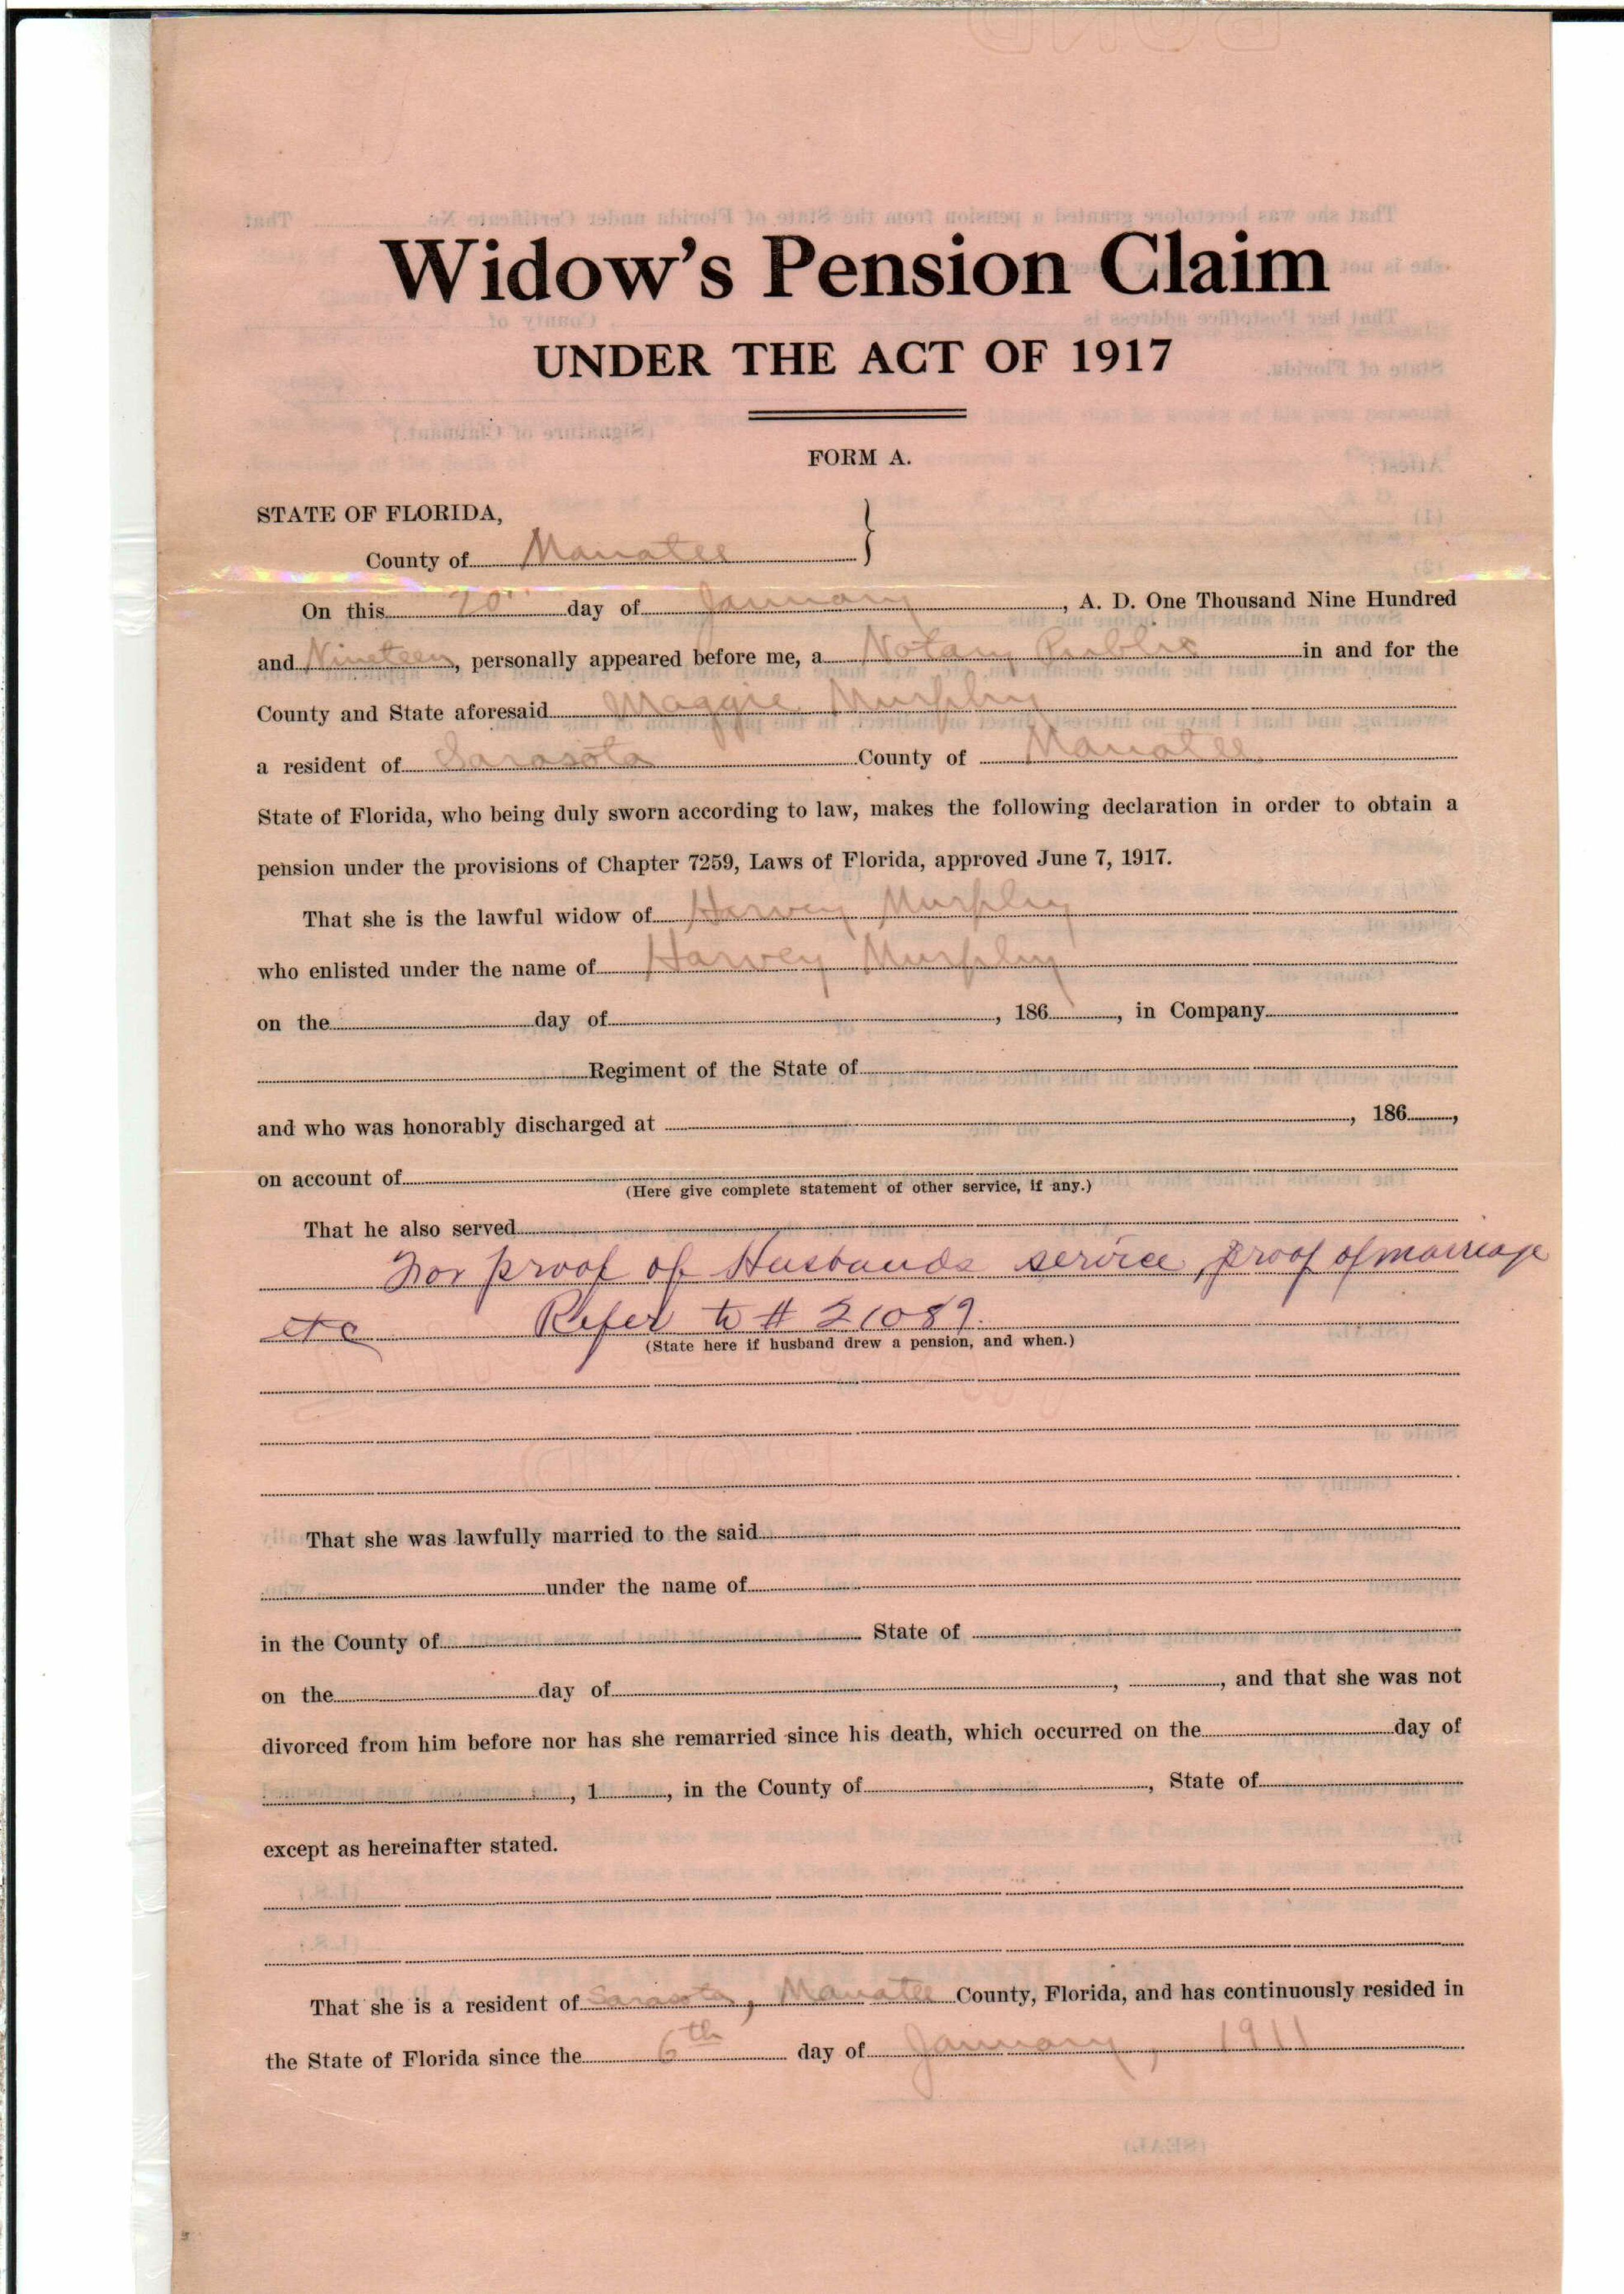 Widow's Pension Claim
UNDER THE ACT OF 1917
FORM A.
STATE OF FLORIDA,
County of Manatee }
On this 20" day of January, A. D. One Thousand Nine Hundred
and Nineteen, personally appeared before me, a Notary Public in and for the
County and State aforesaid Maggie Murphy
a resident of Sarasota County of Manatee
State of Florida, who being duly sworn according to law, makes the following declaration in order to obtain a
pension under the provisions of Chapter 7259, Laws of Florida, approved June 7, 1917.
That she is the lawful widow of Harvey Murphy
who enlisted under the name of Harvey Murphy
on the day of , 186 , in Company
Regiment of the State of
and who was honorably discharged at , 186 ,
on account of
(Here give complete statement of other service, if any.)
That he also served
For proof of Husbands service, proof of marriage
etc Refer to # 21089.
(State here if husband drew a pension, and when.)
That she was lawfully married to the said
under the name of
in the County of State of
on the day of , , and that she was not
divorced from him before nor has she remarried since his death, which occurred on the day of
, 1 , in the County of , State of
except as hereinafter stated.
That she is a resident of Sarasota, Manatee County, Florida, and has continuously resided in
the State of Florida since the 6th day of January, 1911